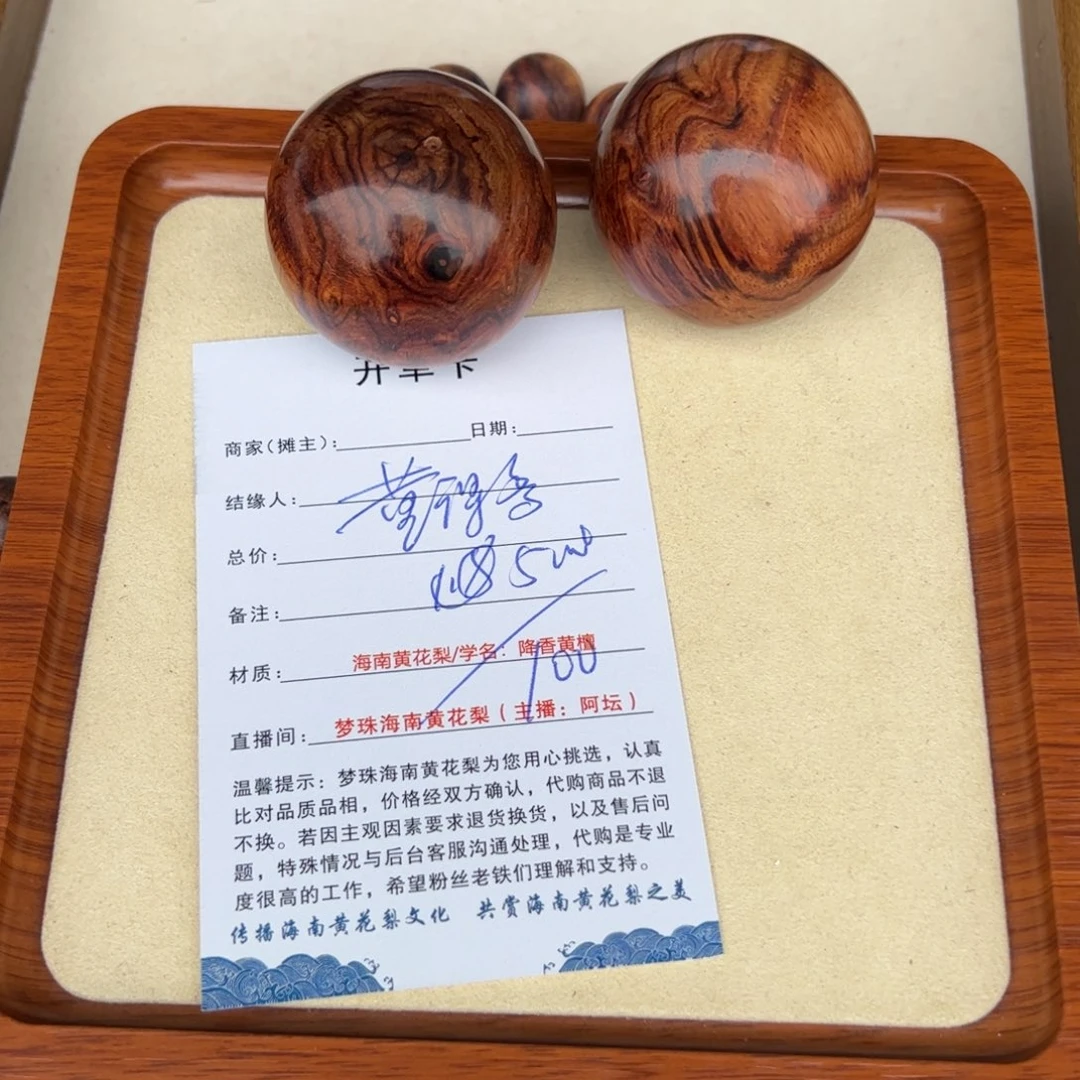 开单卡
商家(摊主): 日期:
结缘人:
总价:
备注:
材质: 海南黄花梨/学名: 降香黄檀
100
直播间: 梦珠海南黄花梨(主播: 阿坛)
温馨提示: 梦珠海南黄花梨为您用心挑选, 认真
比对品质品相, 价格经双方确认, 代购商品不退
不换。若因主观因素要求退货换货, 以及售后问
题, 特殊情况与后台客服沟通处理, 代购是专业
度很高的工作, 希望粉丝老铁们理解和支持。
传播海南黄花梨文化 共赏海南黄花梨之美